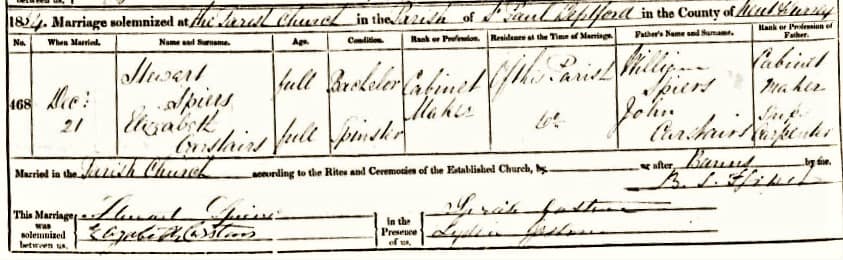 1854. Marriage solemnized at the Parish Church in the Parish of St Paul Deptford in the County of Kent & Surrey
No. When Married. Name and Surname. Age. Condition. Rank or Profession. Residence at the Time of Marriage. Father's Name and Surname. Rank or Profession of Father.
468 Decr 21 Stewart Spiers full Bachelor Cabinet Maker Of this Parish William Spiers Cabinet Maker
Elizabeth Carstairs full Spinster do John Carstairs Carpenter
Married in the Parish Church according to the Rites and Ceremonies of the Established Church, by or after Banns by me,
B. S.
This Marriage was solemnized between us, Stewart Spiers Elizabeth Carstairs in the Presence of us,
Lydia